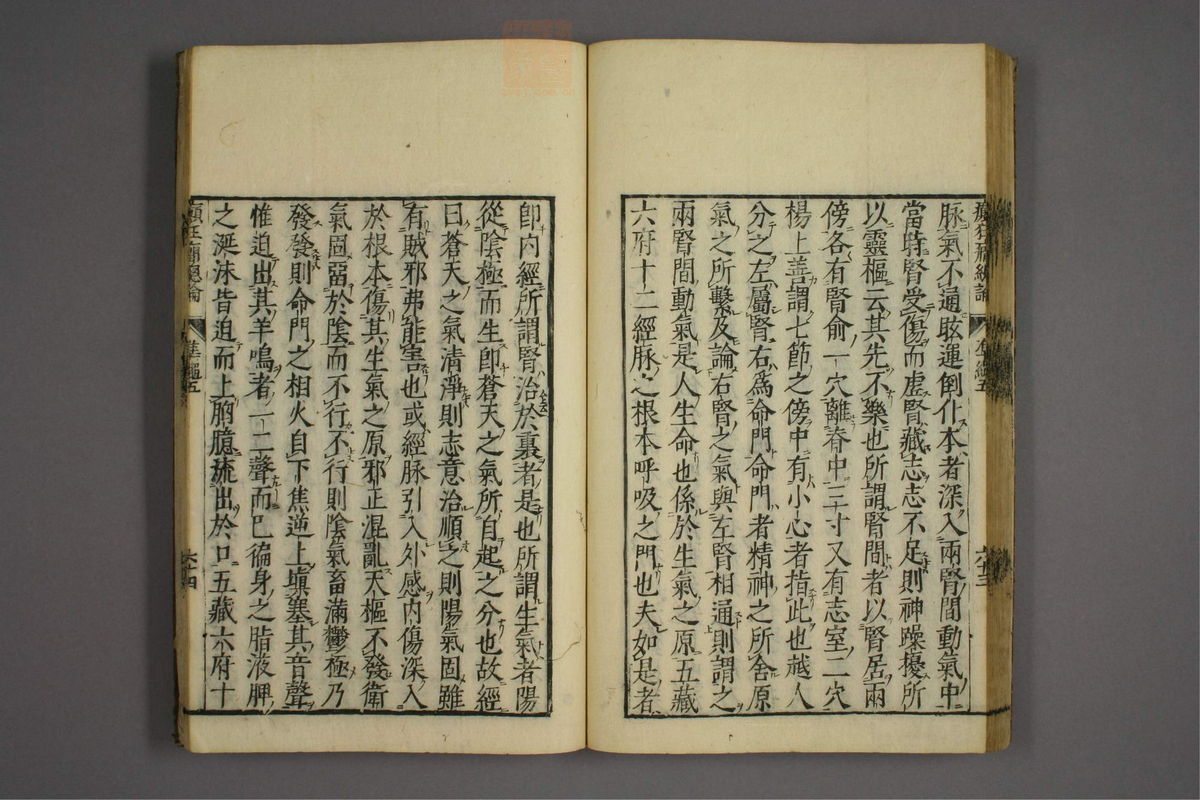 脉氣不通眩運倒仆本者深入兩腎間動氣中
當時腎受傷而虛腎藏志志不足則神躁擾所
以靈樞云其先不樂也所謂腎間者以腎居兩
傍各有腎俞一穴離脊中三寸又有志室二穴
楊上善謂七節之傍中有小心者指此也越人
分之左屬腎右爲命門命門者精神之所舍原
氣之所繫及論右腎之氣與左腎相通則謂之
兩腎間動氣是人生命也係於生氣之原五藏
六府十二經脉之根本呼吸之門也夫如是者
六十三
即内經所謂腎治於裏者是也所謂生氣者陽
從陰極而生即蒼天之氣所自起之分也故經
曰蒼天之氣清淨則志意治順之則陽氣固雖
有賊邪弗能害也或經脉引入外感内傷深入
於根本傷其生氣之原邪正混亂天樞不發衛
氣固留於陰而不行不行則陰氣畜滿鬱極乃
發發則命門之相火自下焦逆上塡塞其音聲
惟迫出其羊鳴者一二聲而已徧身之脂液脾
之涎沫皆迫而上胷臆琉出於口五藏六府十
六十四